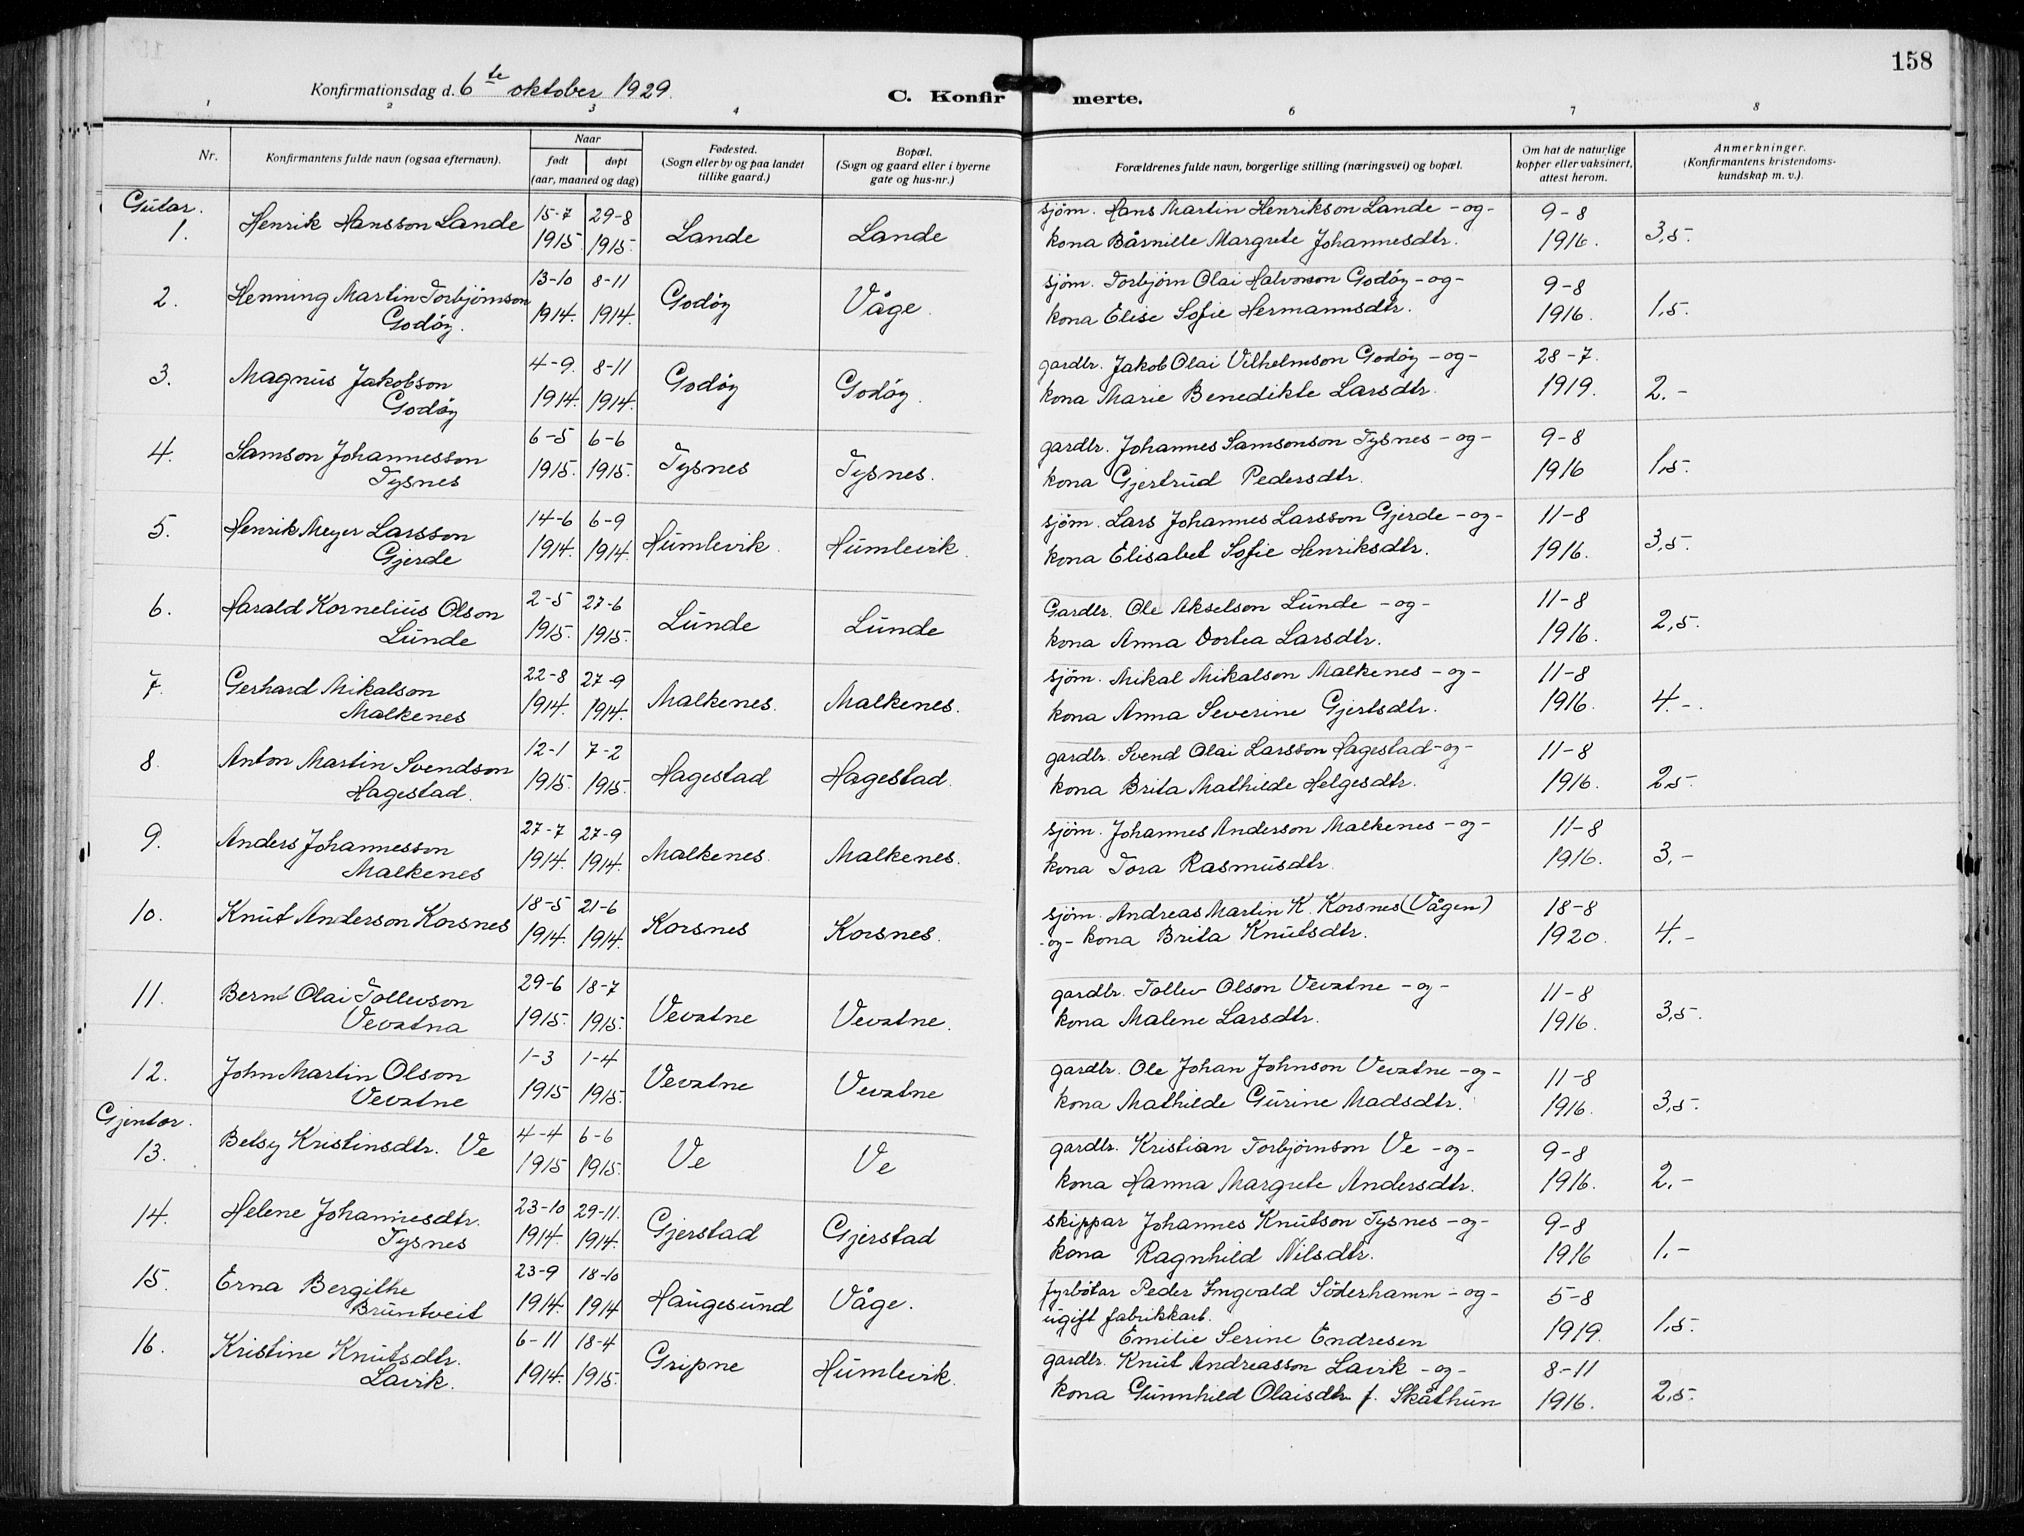 158
Konfirmationsdag d. 6te oktober 1929.
C. Konfirmerte.
1 2 3 4 6 7 8
Nr.
Konfirmantens fulde navn (ogsaa efternavn).
Naar
født døpt
(aar, maaned og dag)
Fødested.
(Sogn eller by og paa landet
tillike gaard.)
Bopæl.
(Sogn og gaard eller i byerne
gate og hus-nr.)
Forældrenes fulde navn, borgerlige stilling (næringsvei) og bopæl.
Om hat de naturlige
kopper eller vaksinert,
attest herom.
Anmerkninger.
(Konfirmantens kristendoms-
kundskap m. v.).
Gutar.
1. Henrik Hansson Lande 15-7 1915 29-8 1915 Lande Lande
sjøm. Hans Martin Henrikson Lande - og -
kona Bårnille Margrete Johannesdtr. 9-8 1916. 3,5.
2. Henning Martin Torbjørnson
Godøy. 13-10 1914. 8-11 1914. Godøy Våge.
sjøm. Torbjørn Olai Halvorson Godøy - og -
kona Elise Sofie Hermannsdtr. 9-8 1916. 1,5.
3. Magnus Jakobson
Godøy 4-9. 1914. 8-11 1914. Godøy Godøy.
gardbr. Jakob Olai Vilhelmson Godøy - og -
kona Marie Benedikte Larsdtr. 28-7. 1919. 2.-
4. Samson Johannesson
Tysnes 6-5 1915. 6-6 1915. Tysnes Tysnes.
gardbr. Johannes Samsonson Tysnes - og -
kona Gjertrud Pedersdtr. 9-8 1916 1,5.
5. Henrik Meyer Larsson
Gjerde 14-6 1914. 6-9 1914. Humlevik. Humlevik.
sjøm. Lars Johannes Larsson Gjerde - og -
kona Elisabet Sofie Henriksdtr. 11-8 1916. 3,5.
6. Harald Kornelius Olson
Lunde 2-5 1915. 27-6 1915. Lunde Lunde
Gardbr. Ole Akselson Lunde - og -
kona Anna Dortea Larsdtr. 11-8 1916. 2,5.
7. Gerhard Mikalson
Malkenes 22-8 1914. 27-9 1914. Malkenes. Malkenes.
sjøm. Mikal Mikalson Malkenes - og -
kona Anna Severine Gjertsdtr. 11-8 1916. 4.-
8. Anton Martin Svendson
Hagestad. 12-1 1915. 7-2 1915. Hagestad Hagestad.
gardbr. Svend Olai Larsson Hagestad - og -
kona Brita Mathilde Helgesdtr. 11-8 1916. 2,5.
9. Anders Johannesson
Malkenes 27-7 1914. 27-9 1914. Malkenes. Malkenes.
sjøm. Johannes Anderson Malkenes - og -
kona Tora Rasmusdtr. 11-8 1916. 3.-
10. Knut Anderson Korsnes 18-5 1914. 21-6 1914. Korsnes Korsnes.
sjøm. Andreas Martin K. Korsnes (Vågen)
- og - kona Brita Knutsdtr. 18-8 1920. 4.-
11. Bernt Olai Tollevson
Vevatna 29-6 1915. 18-7 1915. Vevatne Vevatne.
gardbr. Tollev Olson Vevatne - og -
kona Malene Larsdtr. 11-8 1916. 3,5.
12. John Martin Olson
Vevatne 1-3 1915 1-4 1915. Vevatne Vevatne
gardbr. Ole Johan Johnson Vevatne - og -
kona Mathilde Gurine Madsdtr. 11-8 1916. 3,5.
Gjentor.
13. Betsy Kristinsdtr. Ve 4-4 1915 6-6 1915. Ve Ve
gardbr. Kristian Torbjørnson Ve - og -
kona Hanna Margrete Andersdtr. 9-8 1916. 2.-
14. Helene Johannesdtr.
Tysnes 23-10 1914. 29-11. 1914. Gjerstad Gjerstad
skippar Johannes Knutson Tysnes - og -
kona Ragnhild Nilsdtr. 9-8 1916 1.-
15. Erna Bergithe
Bruntveit 23-9 1914. 18-10 1914 Haugesund Våge.
fyrbøtar Peder Ingvald Söderhamn - og -
ugift fabrikkarb.
Emilie Serine Endresen 5-8 1919. 1,5.
16. Kristine Knutsdtr.
Lavik. 6-11 1914. 18-4 1915. Gripne Humlevik.
gardbr. Knut Andreasson Lavik - og -
kona Gunnhild Olaisdtr f. Skåthun 8-11 1916. 2,5.